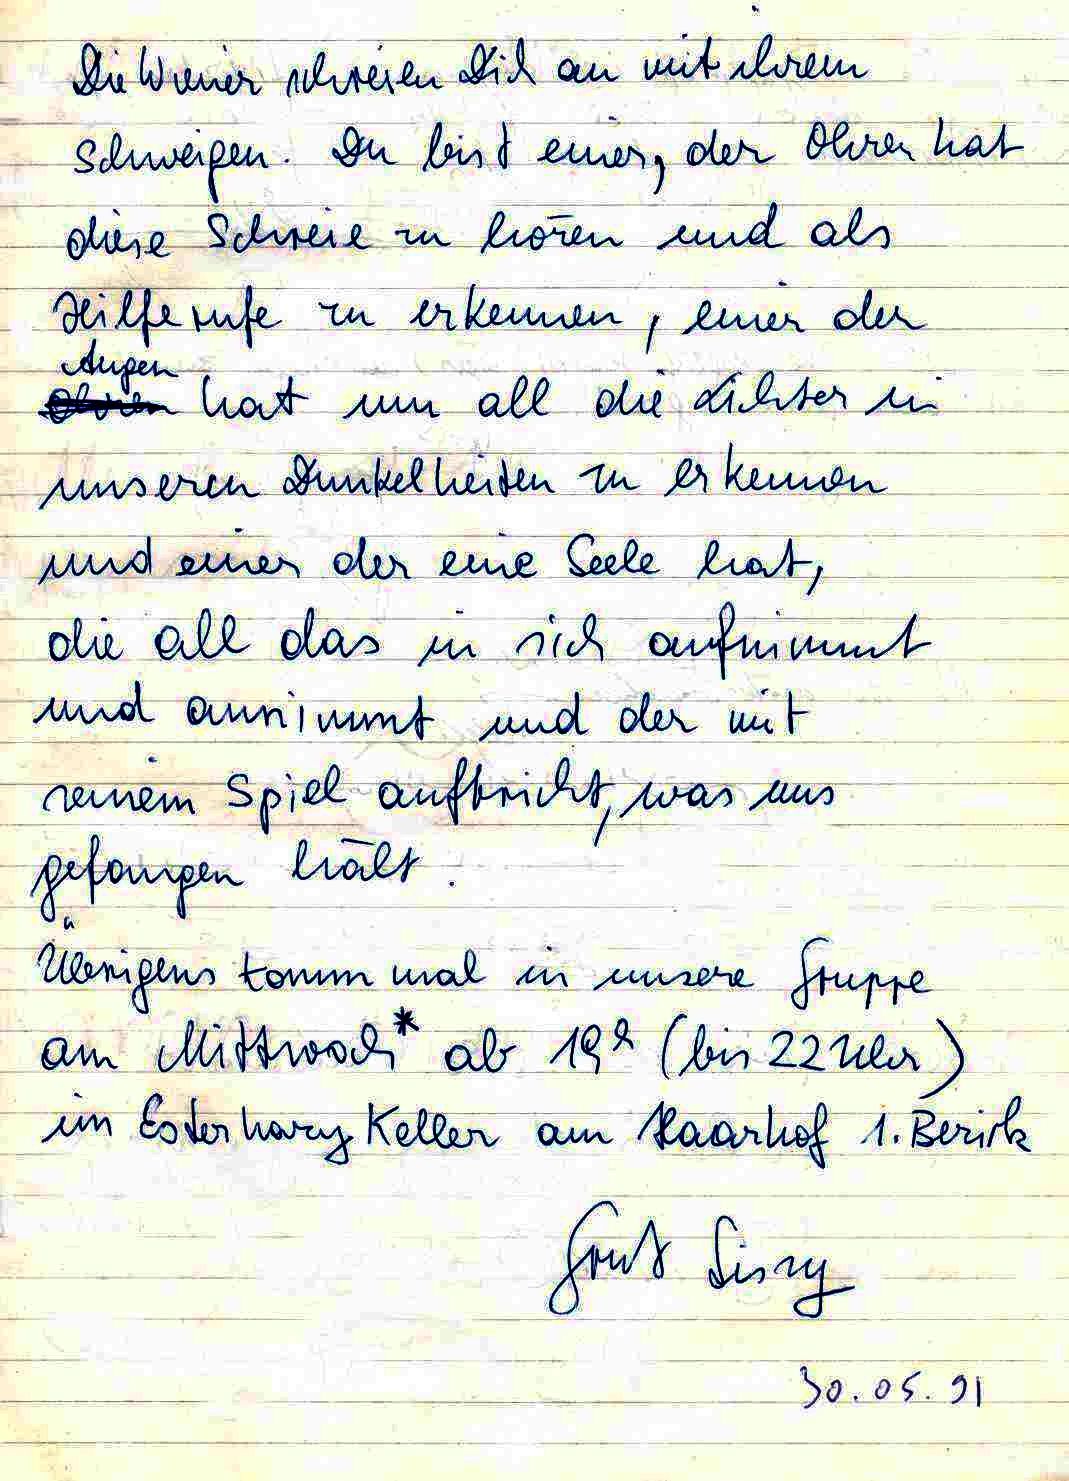 Die Wiener schreien Dich an mit ihrem
Schweigen. Du bist einer, der Ohren hat
diese Schreie zu hören und als
Hilferufe zu erkennen, einer der
Augen
Ohren hat um all die Lichter in
unseren Dunkelheiten zu erkennen
und einer der eine Seele hat,
die all das in sich aufnimmt
und annimmt und der mit
seinem Spiel aufbricht, was uns
gefangen hält.
Übrigens komm mal in unsere Gruppe
am Mittwoch* ab 19h (bis 22 Uhr)
im Esterhazy Keller am Haarhof 1. Bezirk
Gruß Sissy
30.05.91